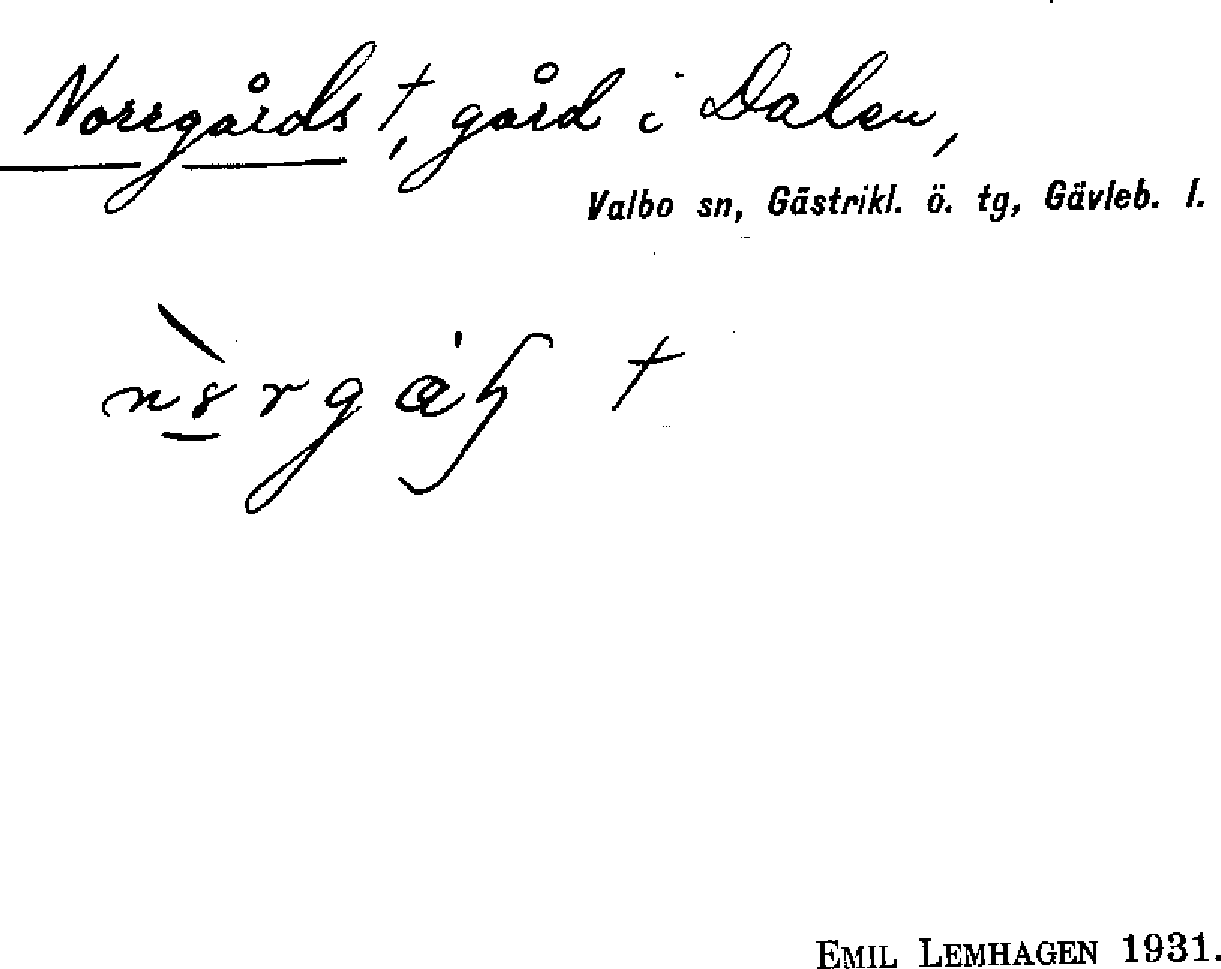 Norrgårds †, gård i Dalen,
Valbo sn, Gästrikl. ö. tg, Gävleb. l.
†
EMIL LEMHAGEN 1931.